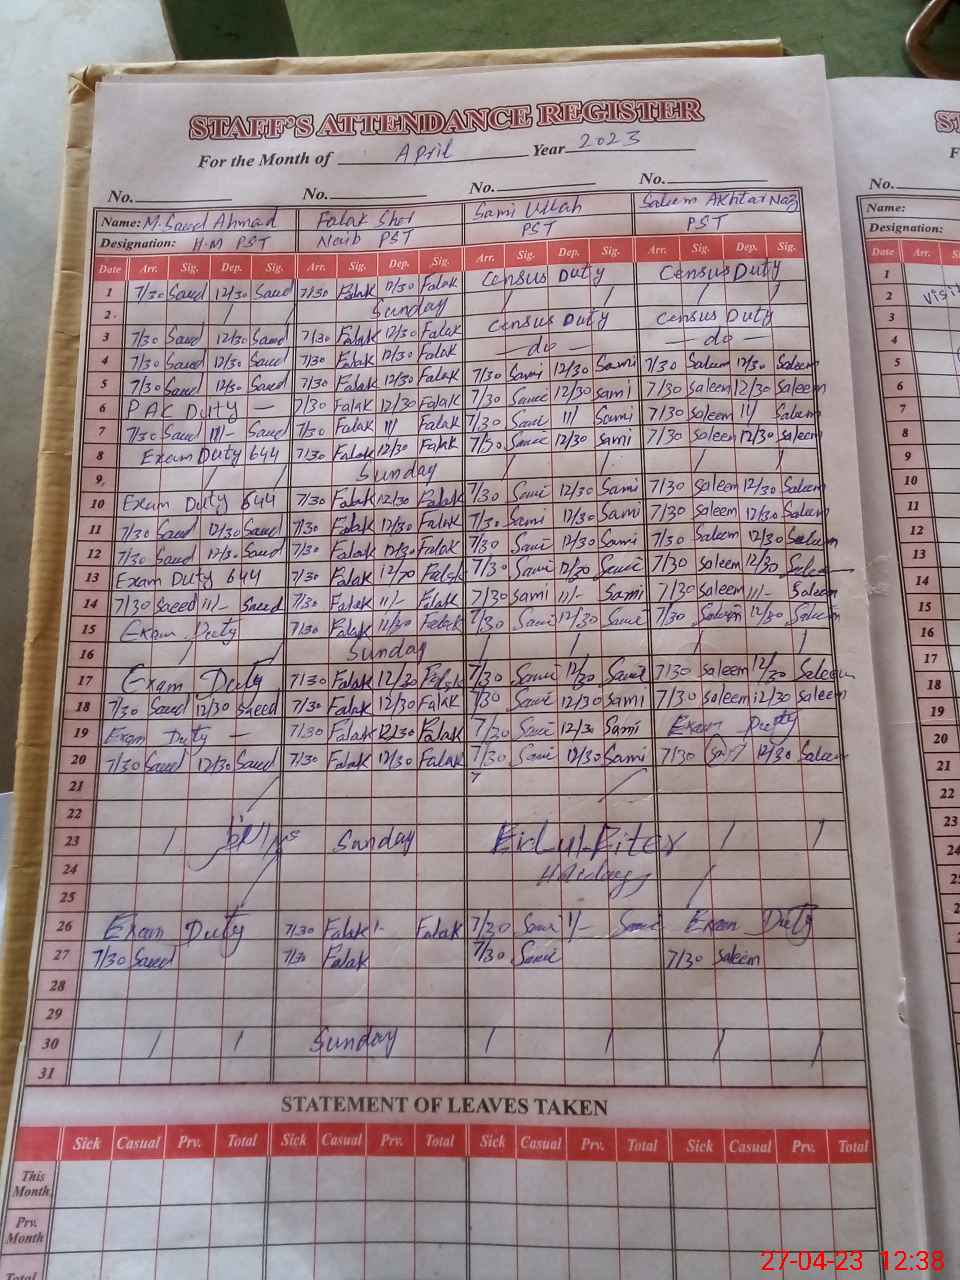 STAFF'S ATTENDANCE REGISTER
For the Month of April Year 2023
No. No. No. No.
Name: M. Saeed Ahmad Falak Sher Sami Ullah Saleem Akhtar Naz
Designation: H-M PST Naib PST PST PST
Date Arr. Sig. Dep. Sig. Arr. Sig. Dep. Sig. Arr. Sig. Dep. Sig. Arr. Sig. Dep. Sig.
1 7/30 Saeed 12/30 Saeed 7/30 Falak 12/30 Falak Census Duty Census Duty
2. / / Sunday / / / /
3 7/30 Saeed 12/30 Saeed 7/30 Falak 12/30 Falak Census Duty Census Duty
4 7/30 Saeed 12/30 Saeed 7/30 Falak 12/30 Falak — do — — do —
5 7/30 Saeed 12/30 Saeed 7/30 Falak 12/30 Falak 7/30 Sami 12/30 Sami 7/30 Saleem 12/30 Saleem
6 PAK Duty — 7/30 Falak 12/30 Falak 7/30 Sami 12/30 Sami 7/30 Saleem 12/30 Saleem
7 7/30 Saeed 11/- Saeed 7/30 Falak 11/ Falak 7/30 Sami 11/ Sami 7/30 Saleem 11/ Saleem
8 Exam Duty 644 7/30 Falak 12/30 Falak 7/30 Sami 12/30 Sami 7/30 Saleem 12/30 Saleem
9. / / Sunday / / / /
10 Exam Duty 644 7/30 Falak 12/30 Falak 7/30 Sami 12/30 Sami 7/30 Saleem 12/30 Saleem
11 7/30 Saeed 12/30 Saeed 7/30 Falak 12/30 Falak 7/30 Sami 12/30 Sami 7/30 Saleem 12/30 Saleem
12 7/30 Saeed 12/30 Saeed 7/30 Falak 12/30 Falak 7/30 Sami 12/30 Sami 7/30 Saleem 12/30 Saleem
13 Exam Duty 644 7/30 Falak Falak 7/30 Sami 12/30 Sami 7/30 Saleem 12/30 Saleem
14 7/30 Saeed 11/- Saeed 7/30 Falak 11/- Falak 7/30 Sami 11/- Sami 7/30 Saleem 11/- Saleem
15 Exam Duty 7/30 Falak Falak 7/30 Sami 12/30 Sami 7/30 Saleem 12/30 Saleem
16 / / Sunday / / / /
17 Exam Duty 7/30 Falak 12/30 Falak 7/30 Sami 12/30 Sami 7/30 Saleem 12/30 Saleem
18 7/30 Saeed 12/30 Saeed 7/30 Falak 12/30 Falak 7/30 Sami 12/30 Sami 7/30 Saleem 12/30 Saleem
19 Exam Duty — 7/30 Falak 12/30 Falak 7/30 Sami 12/30 Sami Exam Duty
20 7/30 Saeed 12/30 Saeed 7/30 Falak 12/30 Falak 7/30 Sami 12/30 Sami 7/30 12/30 Saleem
21
22
23 / Sunday Eid-Ul-Fiter / /
24 Holidays /
25
26 Exam Duty 7/30 Falak 1- Falak 7/30 Sami 1/- Sami Exam Duty
27 7/30 Saeed 7/30 Falak 7/30 Sami 7/30 Saleem
28
29
30 / / Sunday / / / /
31
STATEMENT OF LEAVES TAKEN
Sick Casual Prv. Total Sick Casual Prv. Total Sick Casual Prv. Total Sick Casual Prv. Total
This Month
Prv. Month
Total
ST
F
No.
Name:
Designation:
Date Arr. S
1
2 Visit
3
4
5
6
7
8
9
10
11
12
13
14
15
16
17
18
19
20
21
22
23
24
25
27-04-23 12:38